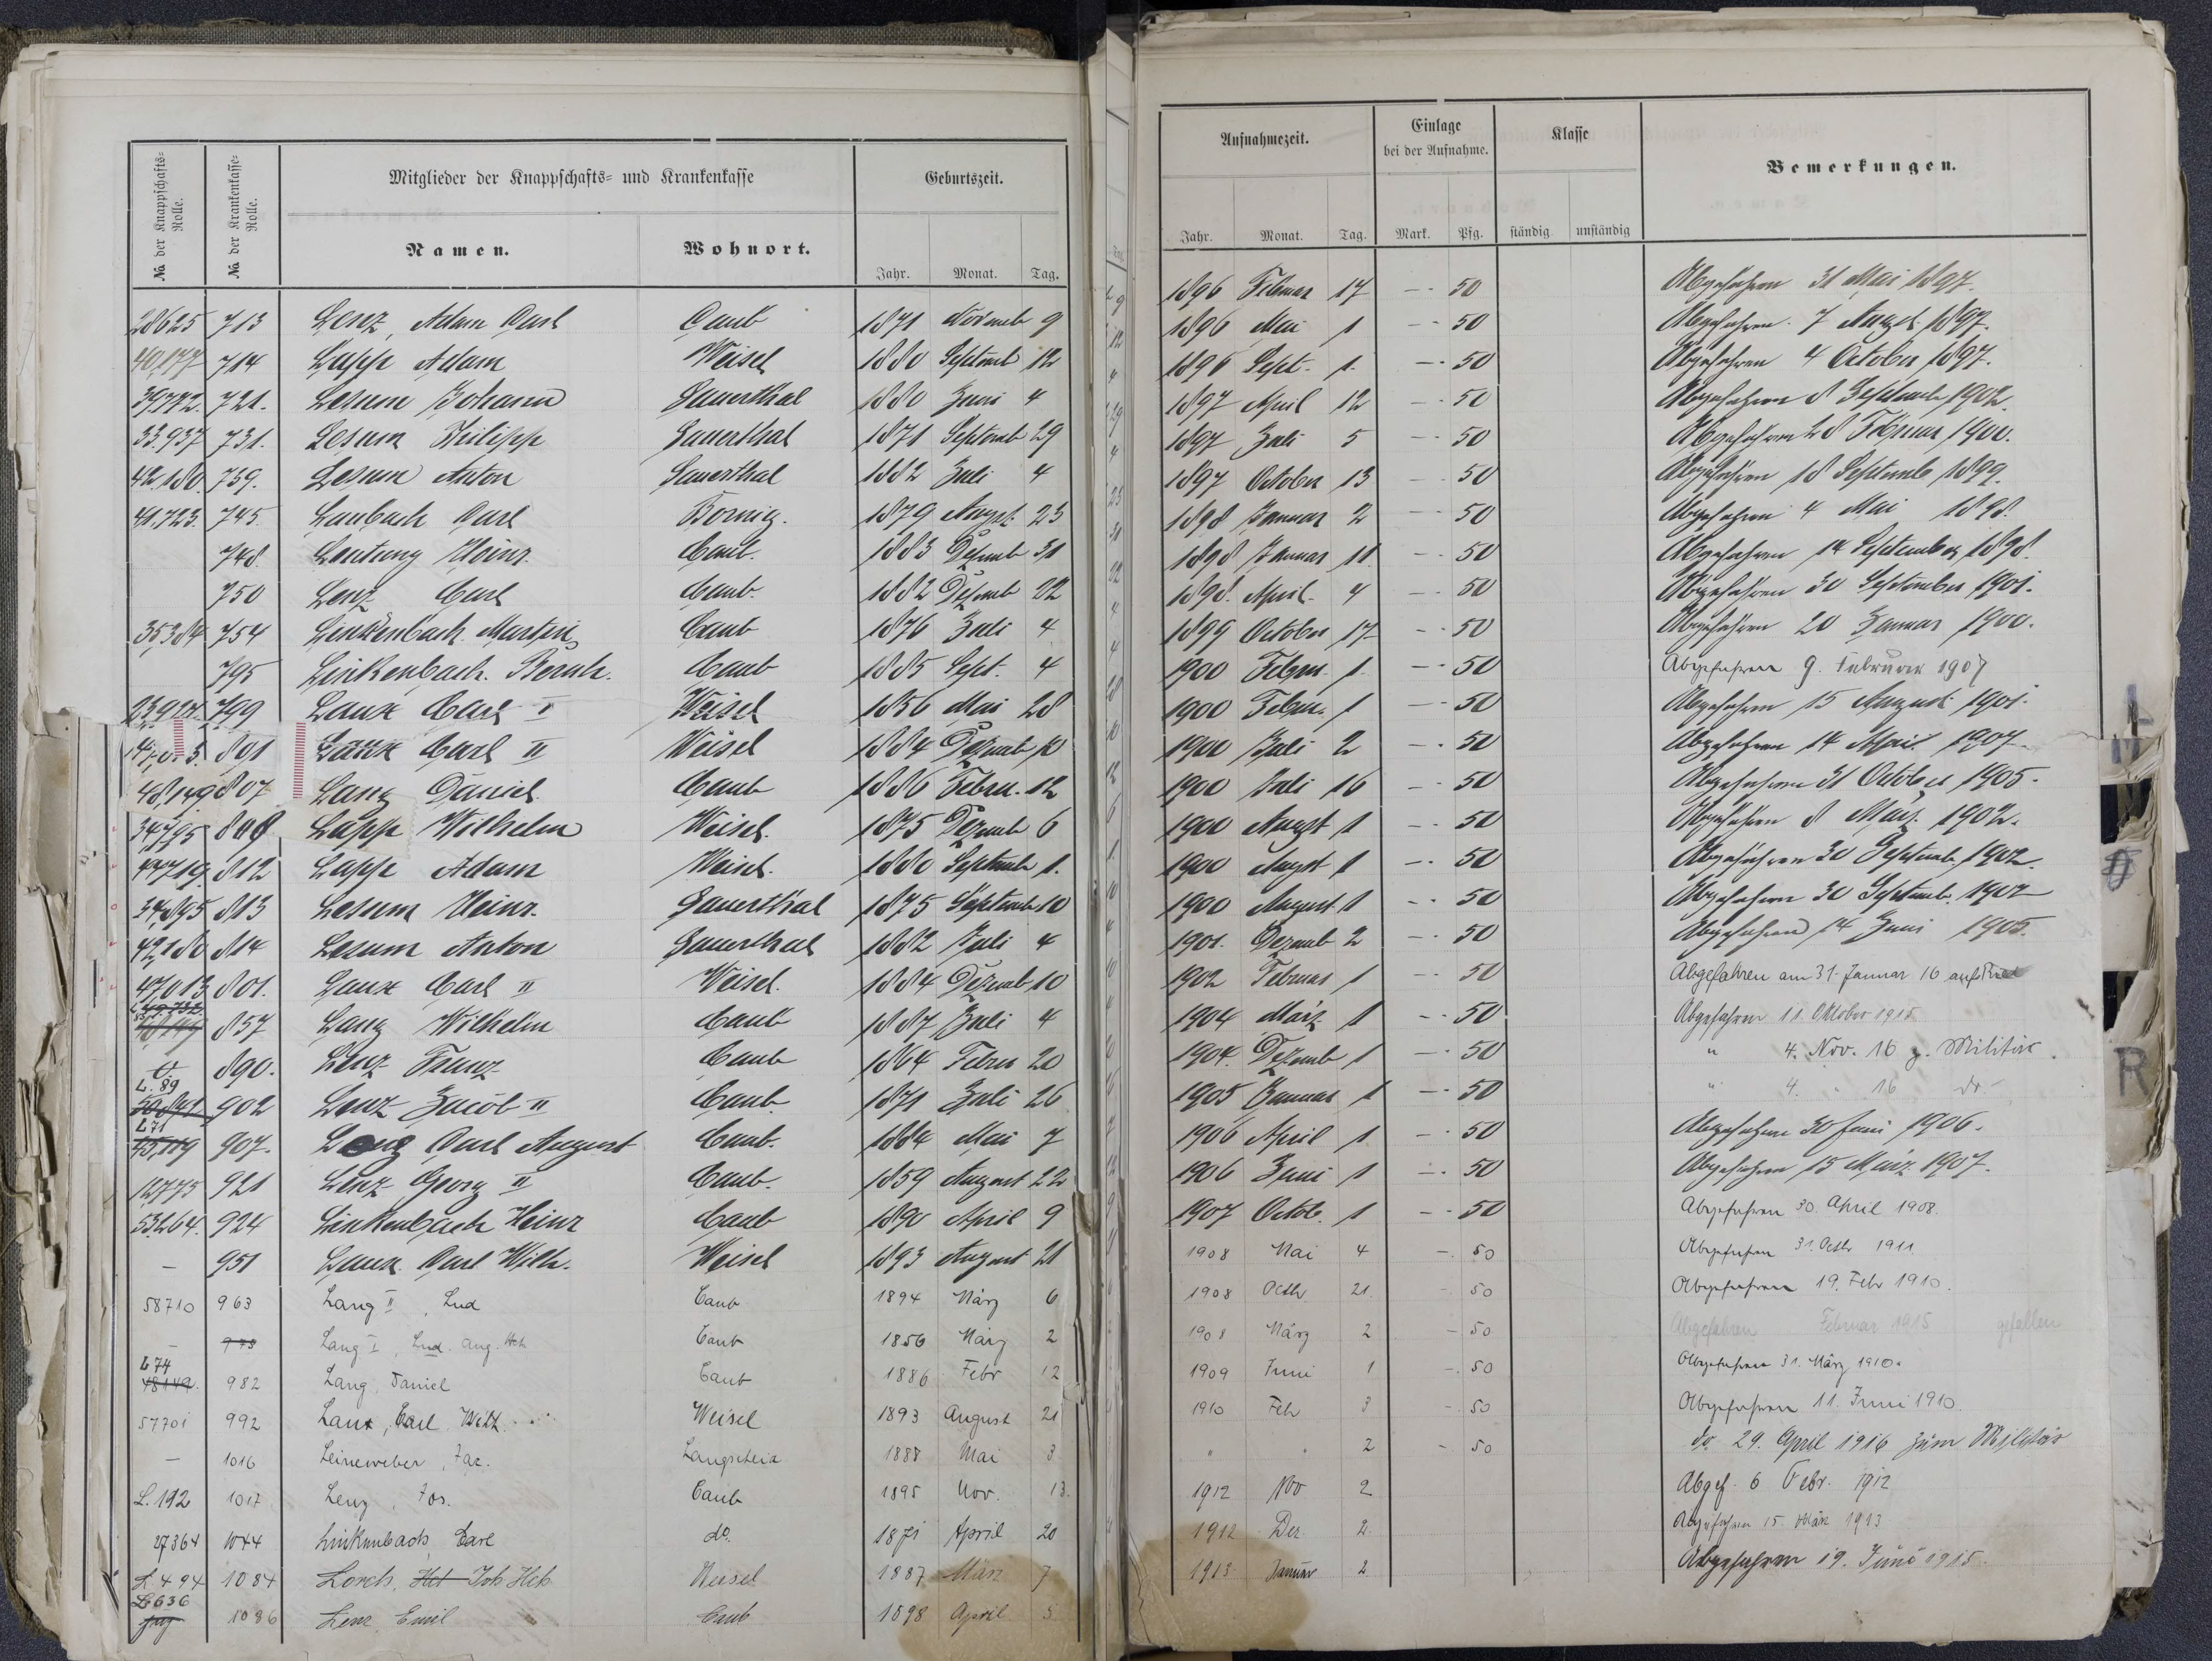 № der Knappschafts-Rolle.
№ der Krankenkasse-Rolle.
Mitglieder der Knappschafts- und Krankenkasse
Geburtszeit.
Namen.
Wohnort.
Jahr. Monat. Tag.
28625 713 Lenz, Adam Carl Caub 1871 Novemb 9
40,177 714 Lapp Adam Weisel 1880 Septemb 12
39,772. 721. Lesum Johann Sauerthal 1880 Juni 4
33,937 731. Lesum Philipp Sauerthal 1871 Septemb 29
42,180. 739. Lesum Anton Sauerthal 1882 Juli 4
41,723. 745. Laubach Carl Bornig. 1879 August 23
748. Heinr. Caub. 1883 Dezemb 31
750 Lenz Carl Caub. 1882 Dezemb 22
35,384 754 Linkenbach. Martin Caub 1876 Juli 4
795 Linkenbach. Bernh. Caub 1885 Sept. 4
23,927. 799 Laux Carl I Weisel 1856 Mai 28
801 Laux Carl II Weisel 1884 Dezemb 10
48,149 807 Lang Daniel Caub 1886 Febru. 12
34,795 808 Lapp Wilhelm Weisel. 1875 Dezemb 6
812 Lapp Adam Weisel. 1880 Septemb 1.
34,895 813 Lesum Heinr. Sauerthal 1875 Septemb 10
42,180 814 Lesum Anton Sauerthal 1882 Juli 4
47,013 801. Laux Carl II Weisel. 1884 Dezemb 10
857 Lang Wilhelm Caub 1887 Juli 4
890. Lenz Franz Caub 1864 Febru 20
L. 89
902 Lenz Jacob II Caub. 1871 Juli 26
L 71
45,119 907. Carl August Caub. 1884 Mai 7
12,775 921 Lenz Georg II Caub. 1859 August 22
53264. 924 Linkenbach Heinr Caub 1890 April 9
— 951 Laux. Carl Wilh. Weisel 1893 August 21
58710 963 Lang II, Lud Caub 1894 März 6
— 973 Lang I, Lud. Aug. Caub 1856 März 2
L 74
48149. 982 Lang, Daniel Caub 1886 Febr 12
57701 992 Laux, Carl Wilh. Weisel 1893 August 21
— 1016 Leineweber, Jac. Langscheid 1888 Mai 3
L. 192 1017 Lenz, Jos. Caub 1895 Nov. 13.
27364 1044 Linkenbach, Carl do. 1871 April 20
L 494 1084 Lorch, Joh. Hch Weisel 1887 März 7
L 636
1086 Lenz Emil Caub 1898 April 5
Aufnahmezeit.
Einlage bei der Aufnahme.
Klasse
Bemerkungen.
Jahr. Monat. Tag. Mark. Pfg. ständig unständig
1896 Februar 17 — 50 Abgefahren 31 Mai 1897.
1896 Mai 1 — 50 Abgefahren. 7 August 1897.
1896 Sept. 1. — 50 Abgefahren 4 October 1897.
1897 April 12 — 50 Abgefahren 8 Septemb 1902.
1897 Juli 5 — 50 Abgefahren 28 Februar 1900.
1897 October 13 — 50 Abgefahren 18 Septemb 1899.
1898 Januar 2 — 50 Abgefahren 4 Mai 1898.
1898 Januar 11. — 50 Abgefahren 14 September 1898.
1898. April. 4 — 50 Abgefahren 30 September 1901.
1899 October 17 — 50 Abgefahren 20 Januar 1900.
1900 Febru. 1. — 50 Abgefahren 9. Februar 1907
1900 Febru. 1 — 50 Abgefahren 15 August 1901.
1900 Juli 2 — 50 Abgefahren 14 April 1907.
1900 Juli 16 — 50 Abgefahren 31 October 1905.
1900 August 1 — 50 Abgefahren 8 März 1902.
1900 August 1 — 50 Abgefahren 30 Septemb 1902.
1900 August 1 — 50 Abgefahren 30 Septemb. 1902
1901. Dezemb 2 — 50 Abgefahren 14 Juni 1905.
1902 Februar 1 — 50 Abgefahren am 31. Januar 16
1904 März 1 — 50 Abgefahren 11. Oktober 1915
1904. Dezemb 1 — 50 " 4. Nov. 16 z. Militär.
1905 Januar 1 — 50 " 4. " 16 do
1906 April 1 — 50 Abgefahren 30 Juni 1906.
1906 Juni 1 — 50 Abgefahren 15 März 1907.
1907 Octob. 1 — 50 Abgefahren 30. April 1908.
1908 Mai 4 — 50 Abgefahren 31. Octbr 1911.
1908 Octbr 21. — 50 Abgefahren 19. Febr 1910.
1908 März 2 — 50 Abgefahren Februar 1915 gefallen
1909 Juni 1 — 50 Abgefahren 31. März 1910.
1910 Febr 3 — 50 Abgefahren 11. Juni 1910.
" " 2 — 50 do. 29. April 1916 zum Militär
1912 Nov 2 Abgef. 6 Febr. 1912
1912 Dez. 2. Abgefahren 15. März 1913
1913 Januar 2 Abgefahren 19. Juni 1915.
R